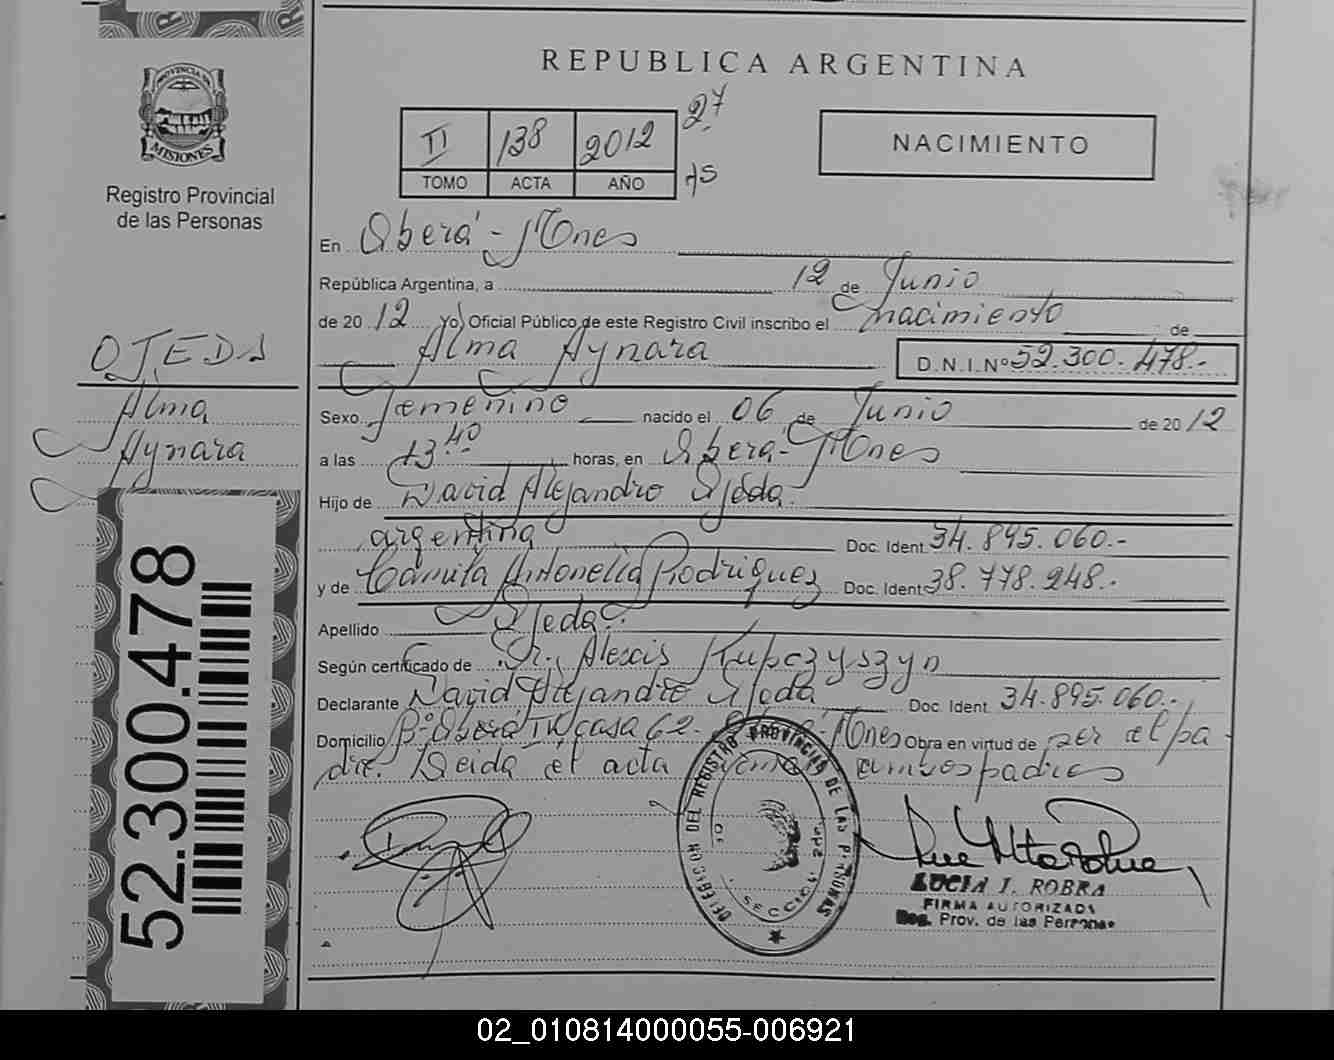 REPUBLICA ARGENTINA
PROVINCIA DE MISIONES
Registro Provincial
de las Personas
II 138 2012 27
TOMO ACTA AÑO
NACIMIENTO
En Oberá - Mnes
República Argentina, a 12 de Junio
de 20 12 Yo, Oficial Público de este Registro Civil inscribo el nacimiento de
Alma Aynara D.N.I.Nº 52.300.478.-
OJEDA
Alma
Aynara
52.300.478
Sexo Femenino nacido el 06 de Junio de 20 12
a las 13 40 horas, en Oberá - Mnes
Hijo de David Alejandro Ojeda
argentina Doc. Ident. 34.895.060.-
y de Camila Antonella Rodriguez Doc. Ident 38.778.248.-
Apellido Ojeda
Según certificado de Dr. Alexis Kupczyszyn
Declarante David Alejandro Ojeda Doc. Ident. 34.895.060.-
Domicilio Bº Oberá IV casa 62 - Oberá Mnes Obra en virtud de ser el pa
dre. Leida el acta firman ambos padres
DEL REGISTRO PROVINCIAL DE LAS PERSONAS
SECCION 2da.
LUCIA I. ROBRA
FIRMA AUTORIZADA
Reg. Prov. de las Personas
02_010814000055-006921